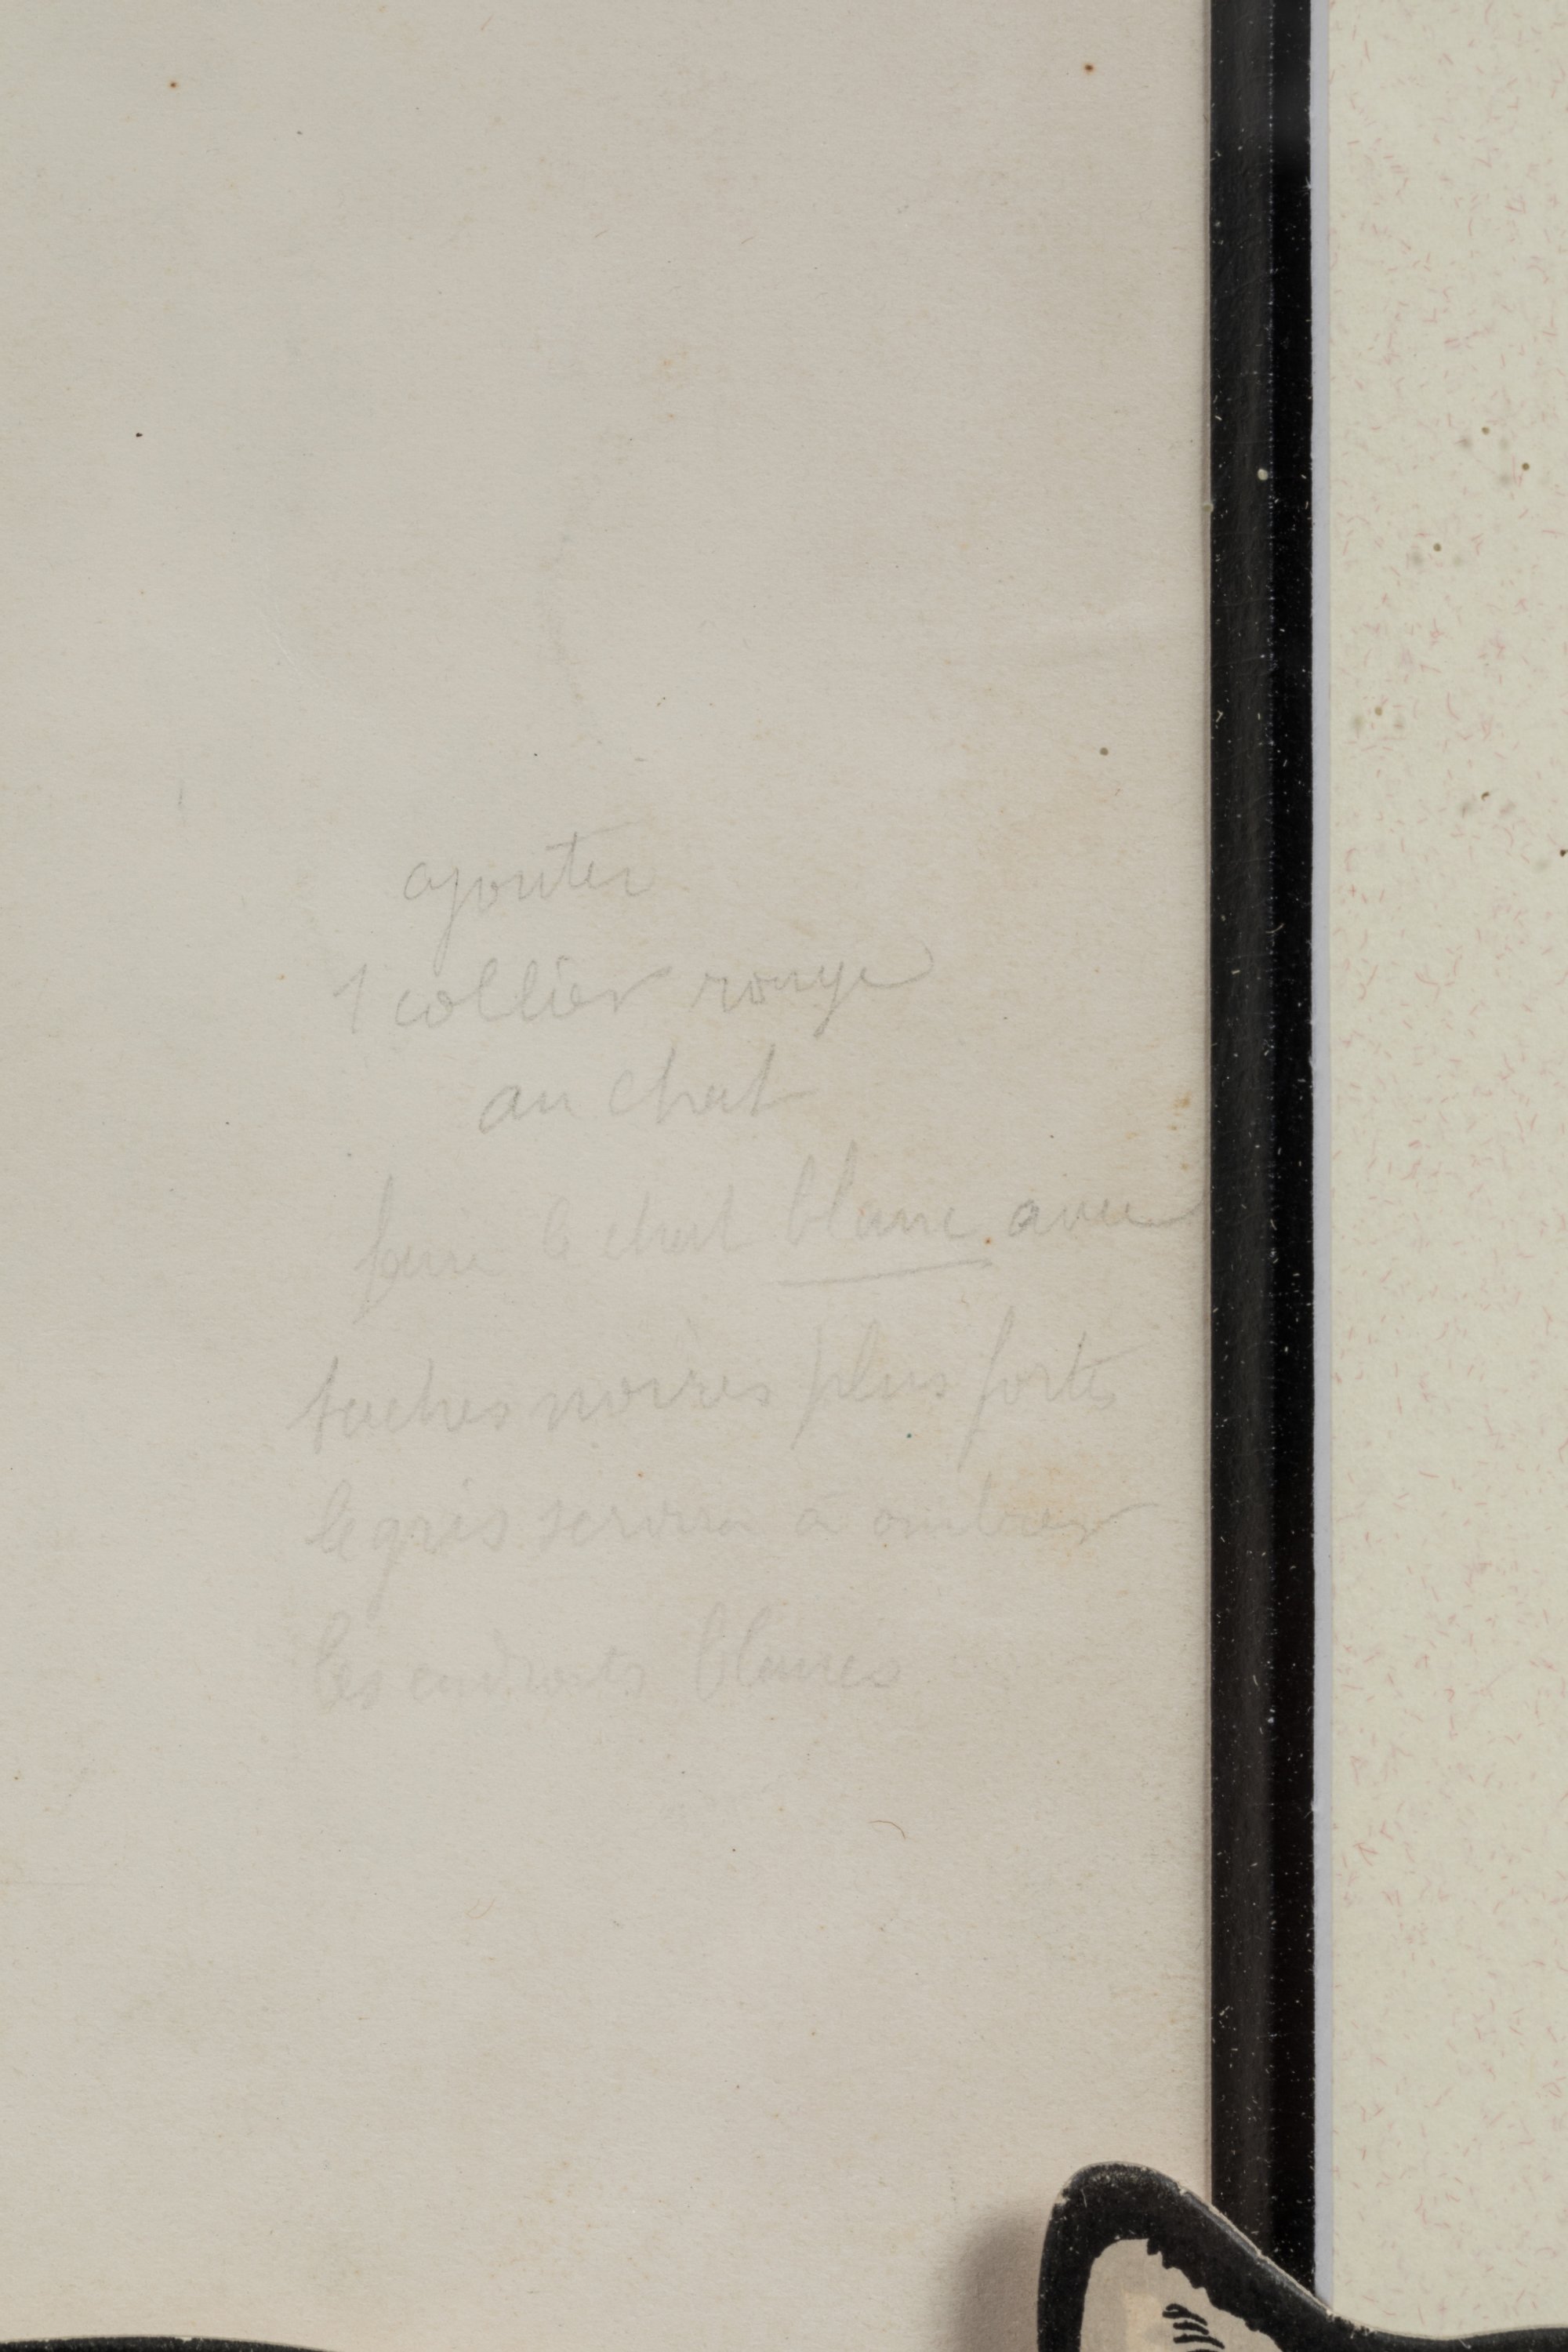 ajouter
1 collier rouge
au chat
faire le chat blanc avec
taches noires plus fortes
le gris servira à ombrer
les endroits blancs